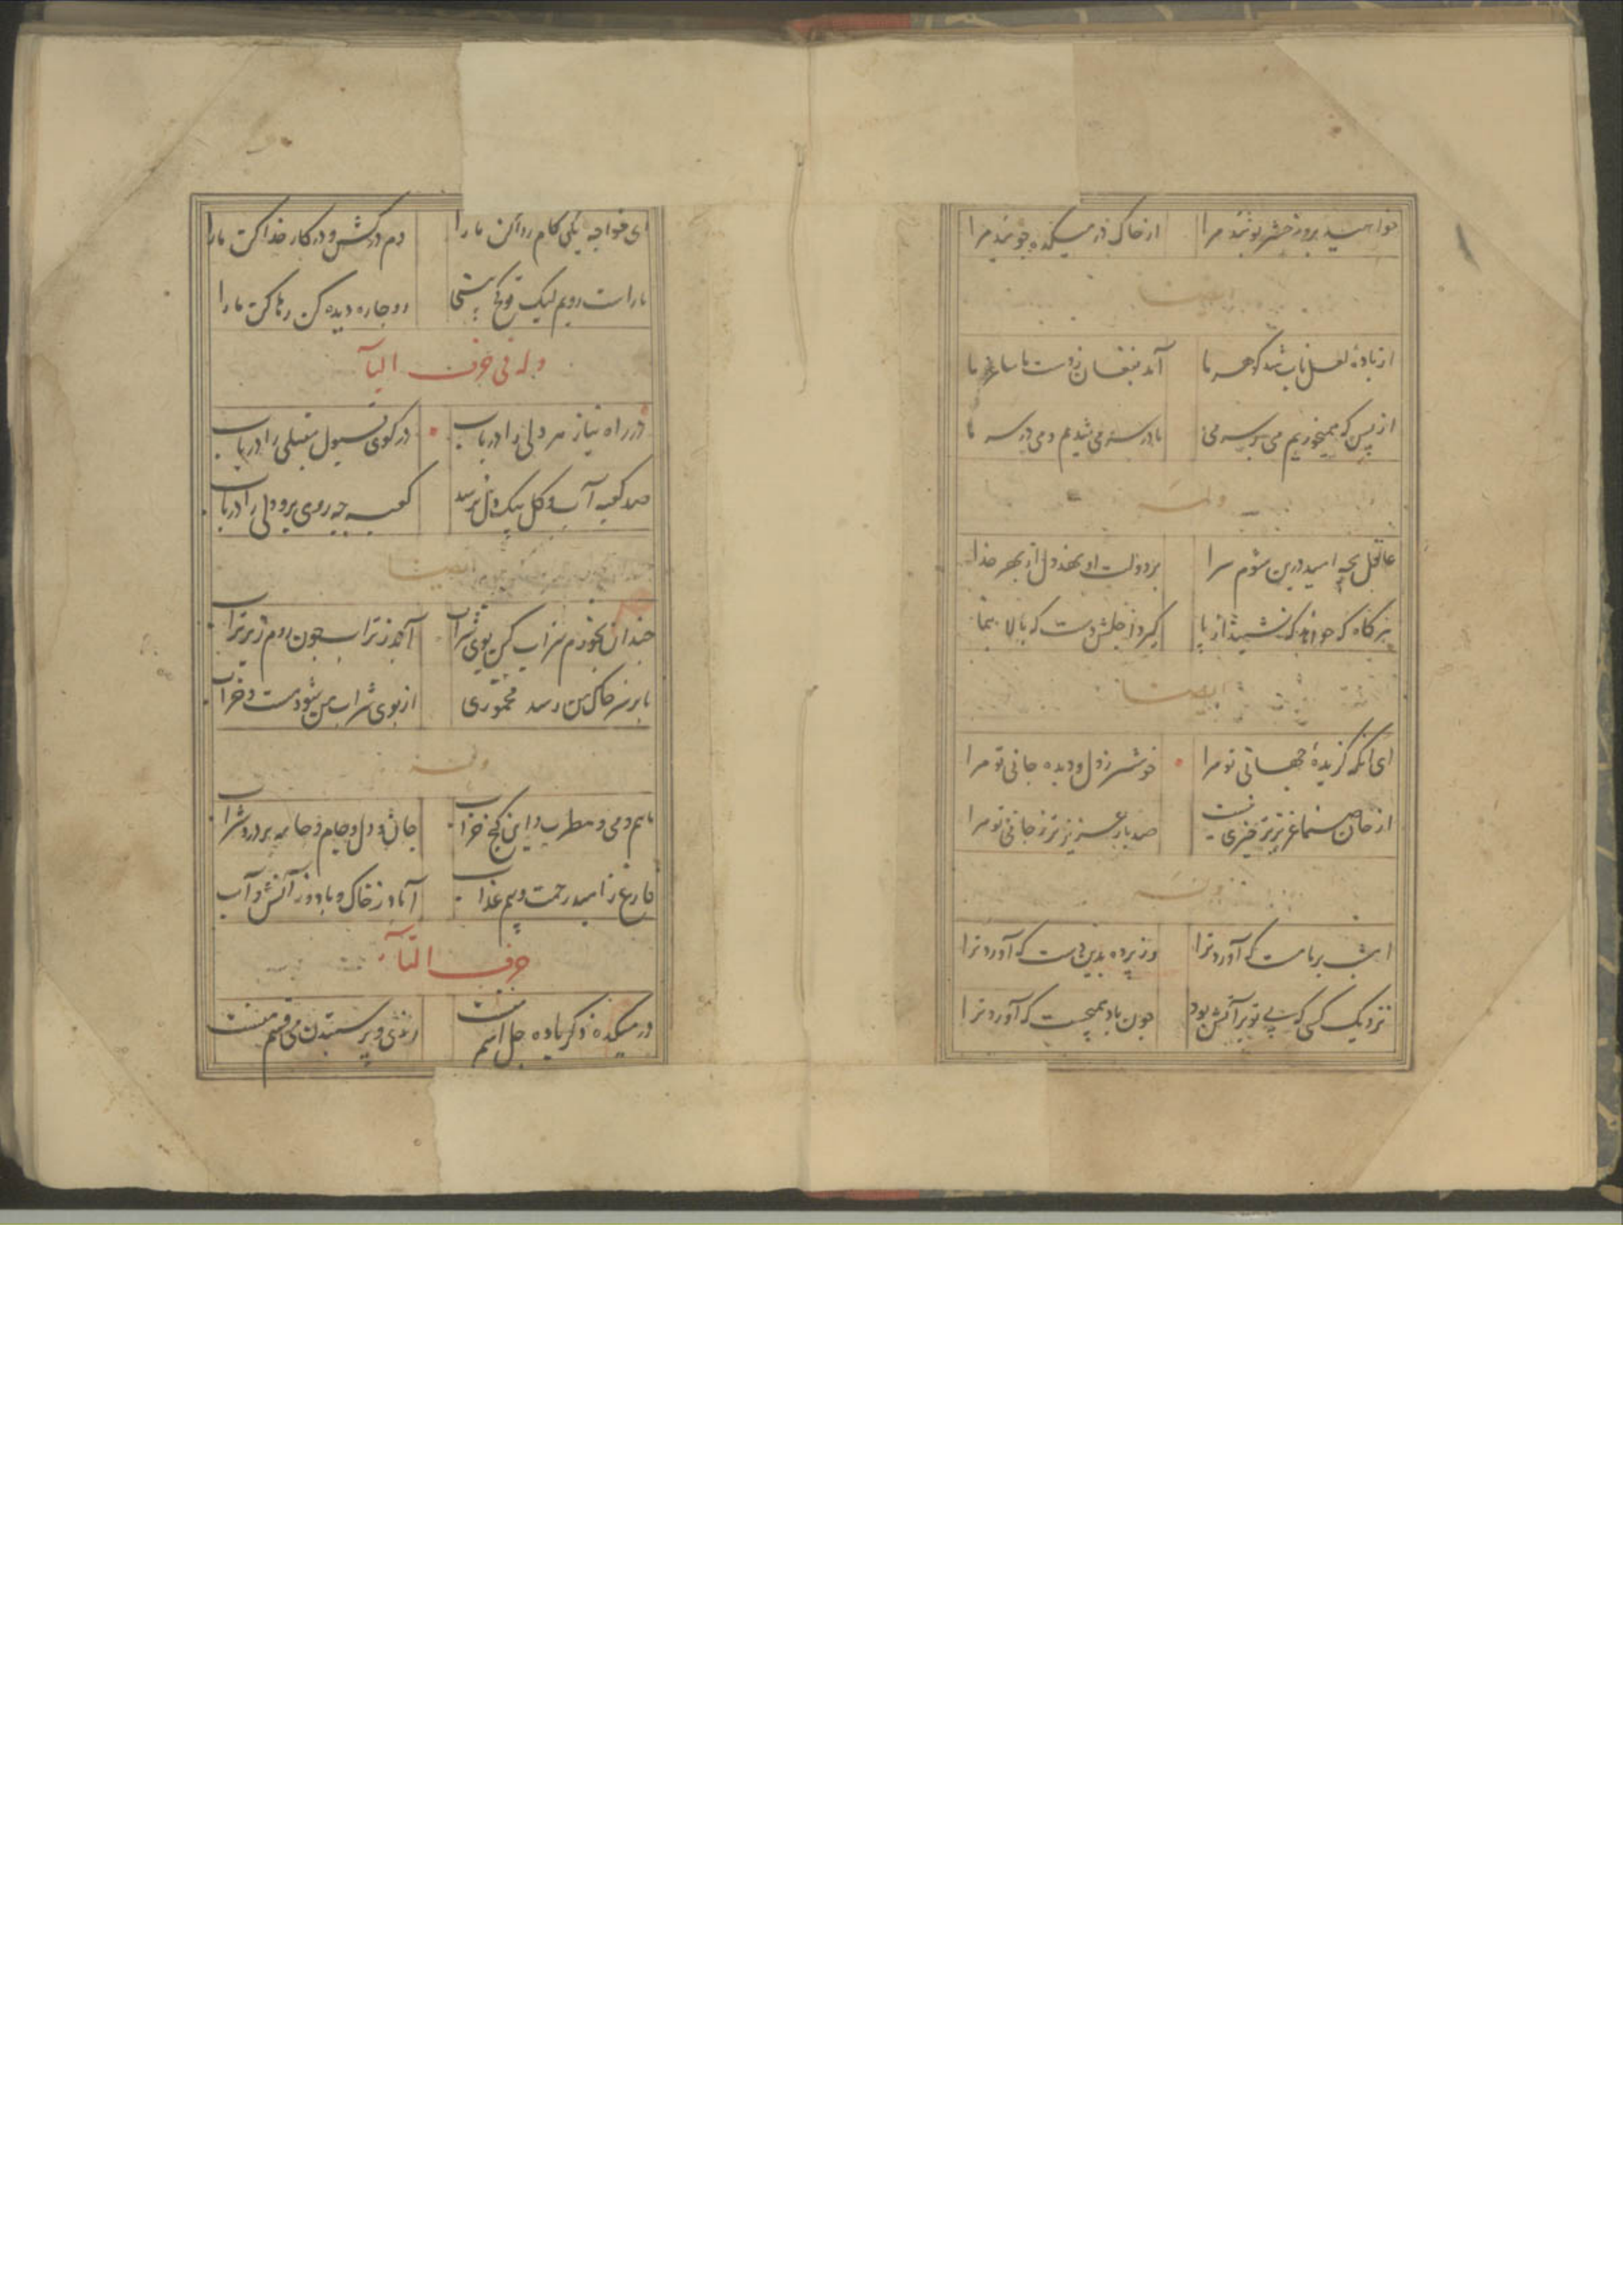 خواهید بروز حشر بوئید مرا از خاک در میکده جوئید مرا
ایضا
از بادهٔ لعل ناب شد گوهر ما آمد بفغان ز دست ما ساغر ما
از بس که همیخوریم می بر سر می ما در سر می شدیم و می در سر ما
وله
عاقل بچه امید درین شوم سرا بر دولت او نهد دل از بهر خدا
هر گاه که خواهد که نشیند از پا گیرد اجلش دست که بالا بنما
ایضا
ای آنکه گزیدهٔ جهانی تو مرا خوشتر ز دل و دیده و جانی تو مرا
از جان صنما عزیزتر چیزی نیست صد بار عزیزتر ز جانی تو مرا
وله
امشب بر ما مست که آورد ترا وز پرده بدین دست که آورد ترا
نزدیک کسی که بی تو بر آتش بود چون باد همی جست که آورد ترا
ای خواجه یکی کام روا کن ما را دم در کش و در کار خدا کن ما را
ما راست رویم لیک تو کج بینی رو چاره دیده کن رها کن ما را
وله فی حرف البآ
در راه نیاز هر دلی را دریاب در کوی قبول مقبلی را دریاب
صد کعبه آب و گل بیک دل نرسد کعبه چه روی برو دلی را دریاب
ایضا
چندان بخورم شراب کین بوی شراب آید ز تراب چون روم زیر تراب
تا بر سر خاک من رسد مخموری از بوی شراب من شود مست و خراب
وله
مائیم و می و مطرب و این کنج خراب جان و دل و جام و جامه پر درد شراب
فارغ ز امید رحمت و بیم عذاب آزاد ز خاک و باد و ز آتش و آب
حرف التآ
در میکده ذکر باده جل اسم منست رندی و پرستیدن می قسم منست